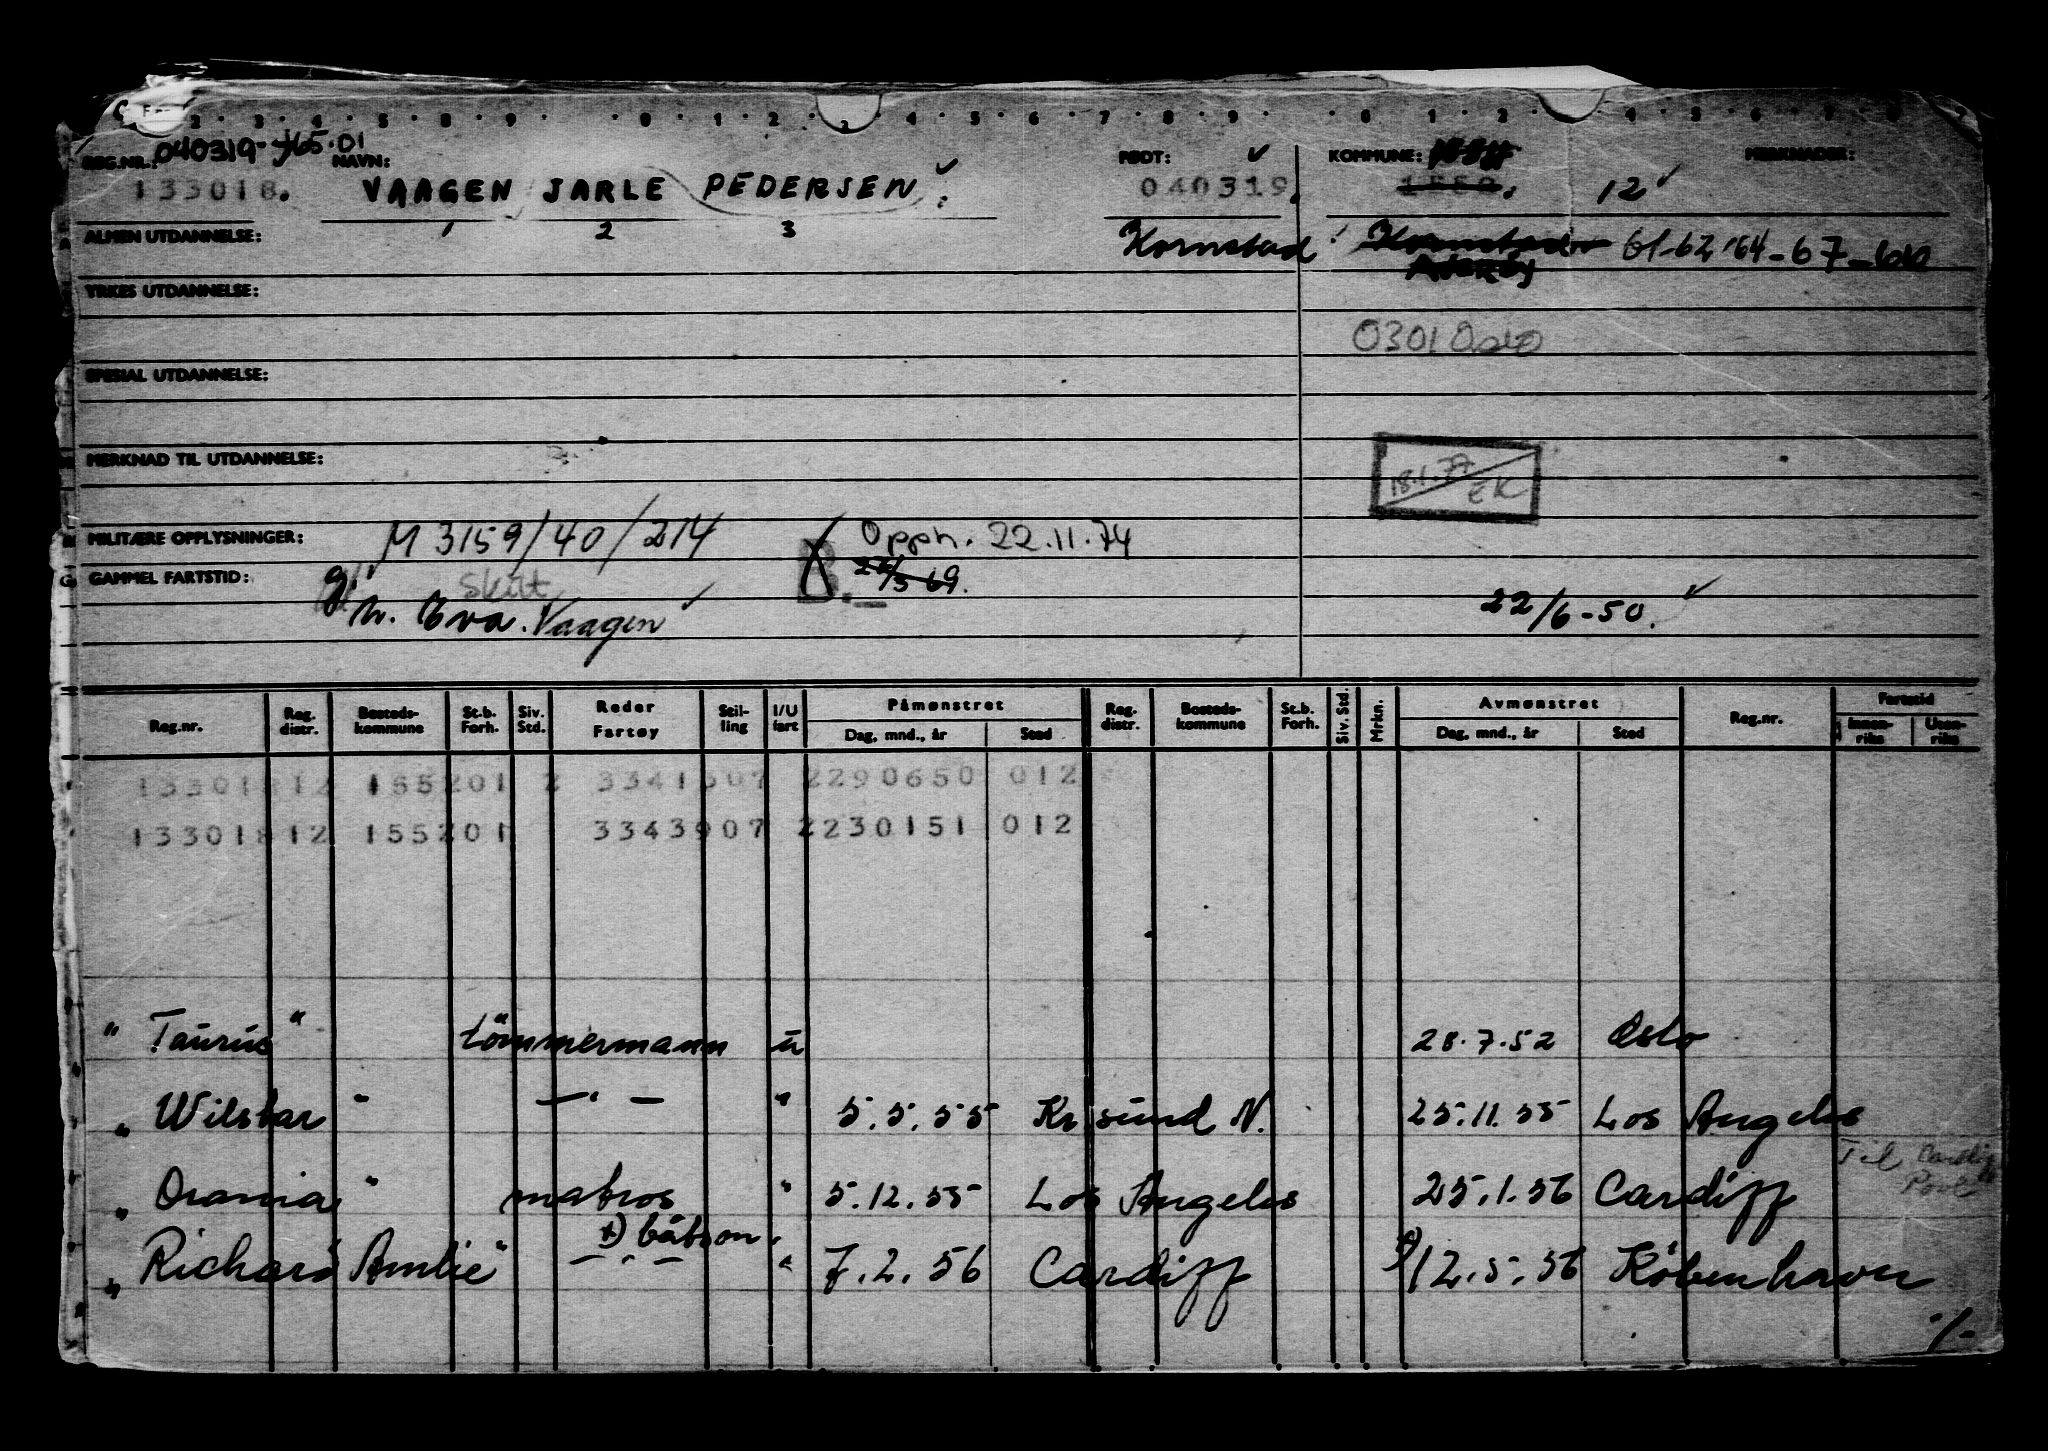 REG.NR.: 040319-465.01 NAVN: FØDT: KOMMUNE: MERKNADER:
133018. VAAGEN JARLE PEDERSEN 040319. 12
1 2 3
ALMEN UTDANNELSE: Kornstad Kornstad 61-62-64-67-
YRKES UTDANNELSE:
0301 Oslo
SPESIAL UTDANNELSE:
MERKNAD TIL UTDANNELSE:
18.1.77 EK
MILITÆRE OPPLYSNINGER: M 3159/40/214 Opph. 22.11.74
GAMMEL FARTSTID: g. skilt
h. Eva Vaagen 22/6-50.
Reg.nr. Reg. distr. Bosteds-kommune St.b. Forh. Siv. Std. Reder Fartøy Stil-ling I/U fart Påmønstret Dag, mnd., år Sted Reg. distr. Bosteds-kommune St.b. Forh. Siv. Std. Mrkn. Avmønstret Dag, mnd., år Sted Reg.nr. Fartstid Innen-riks Uten-riks
133018 12 155201 2 3341 07 2290650 012
133018 12 155201 3343907 2230151 012
" Taurus " tömmermann u 28.7.52 Oslo
" Wilstar " — " — " 5.5.55 Kr sund N. 25.11.55 Los Angeles
Til Cardiff
" Orania " matros " 5.12.55 Los Angeles 25.1.56 Cardiff
x) båtsm.
" Richard Amlie " — " — " 7.2.56 Cardiff x) 12.5.56 København
-/-